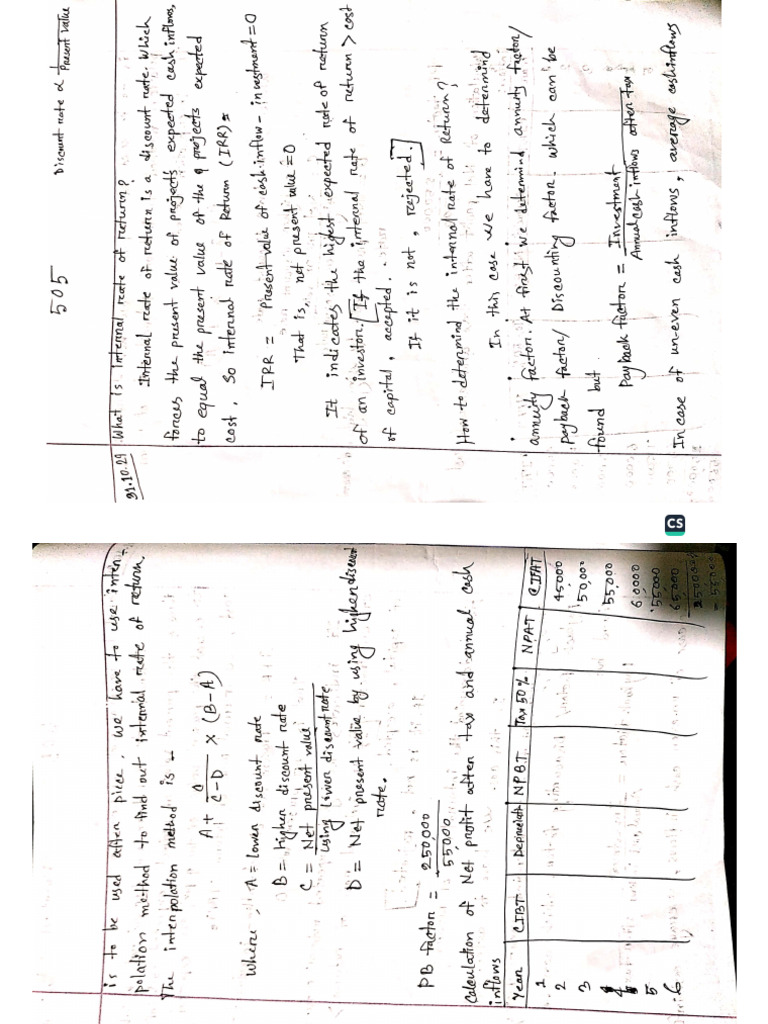 505
Discount rate α 1/Present value
31.10.29 What is internal rate of return?
Internal rate of return is a discount rate. Which
forces the present value of projects expected cash inflows,
to equal the present value of the projects expected
cost, So internal rate of Return (IRR) =
IRR = Present value of cash inflow - investment = 0
That is, net present value = 0
It indicates the highest expected rate of return
of an investor. If the internal rate of return > cost
of capital, accepted.
If it is not, rejected.
How to determind the internal rate of Return?
In this case we have to determind
annuity factor. At first we determind annuity factor/
payback factor/ Discounting factor. which can be
found but
Payback factor = Investment / Annual cash inflows after tax
In case of un-even cash inflows, average cashinflows
CS
is to be used after piece, we have to use inter-
polation method to find out internal rate of return.
The interpolation method is -
A + C/C-D × (B-A)
Where, A = lower discount rate
B = higher discount rate
C = Net present value
using lower discount rate
D = Net present value by using higher discount
rate.
PB factor = 250,000 / 55000
Calculation of Net profit after tax and annual cash
inflows
Year CIBT Depreciation NPBT Tax 50% NPAT CIFAT
1 45000
2 50,000
3 55,000
4 60000
5 55000
6 65000
= 55000